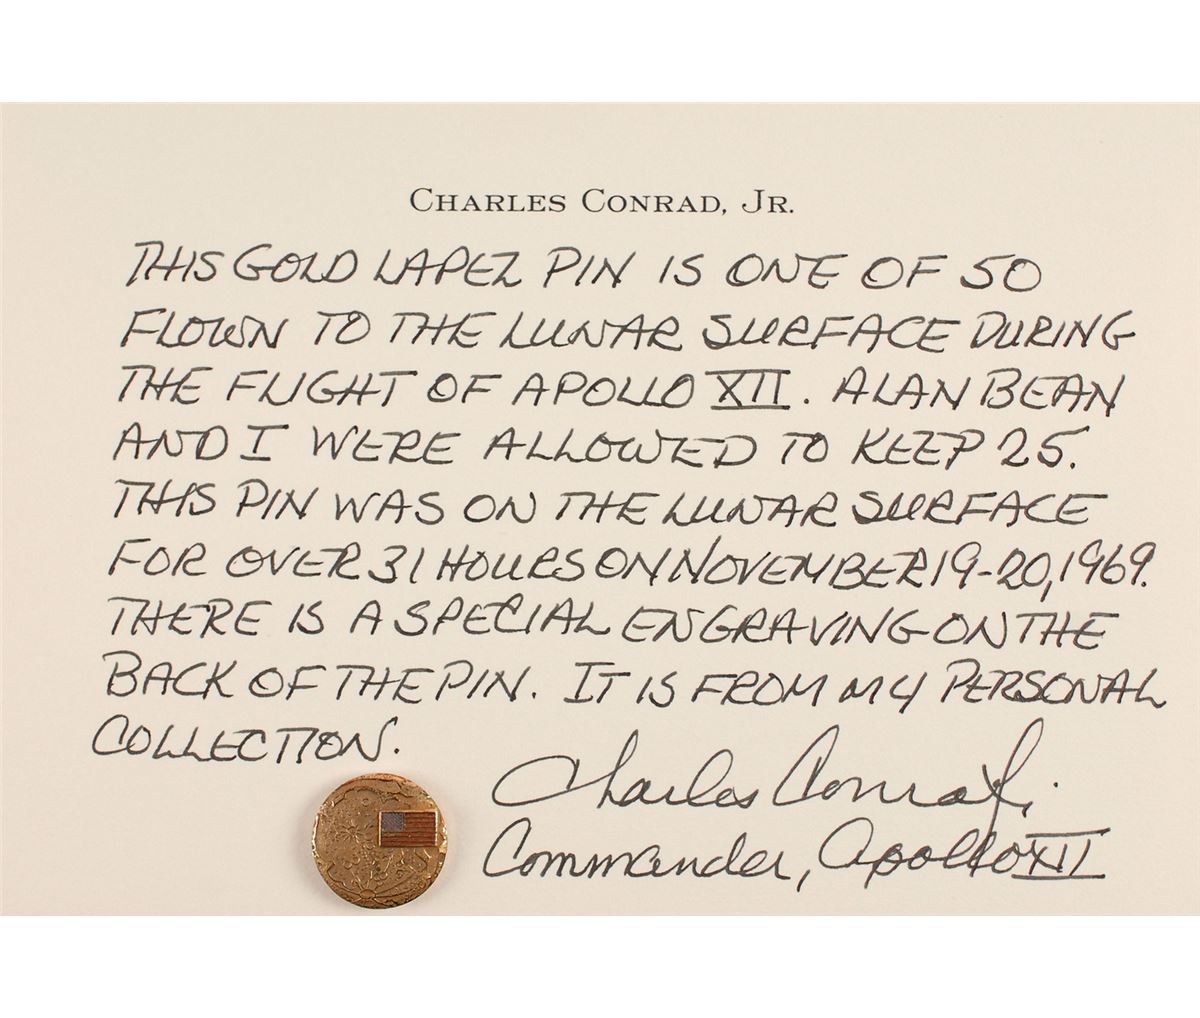 CHARLES CONRAD, JR.
THIS GOLD LAPEL PIN IS ONE OF 50
FLOWN TO THE LUNAR SURFACE DURING
THE FLIGHT OF APOLLO XII. ALAN BEAN
AND I WERE ALLOWED TO KEEP 25.
THIS PIN WAS ON THE LUNAR SURFACE
FOR OVER 31 HOURS ON NOVEMBER 19-20, 1969.
THERE IS A SPECIAL ENGRAVING ON THE
BACK OF THE PIN. IT IS FROM MY PERSONAL
COLLECTION.
Charles Conrad Jr.
Commander, Apollo XII